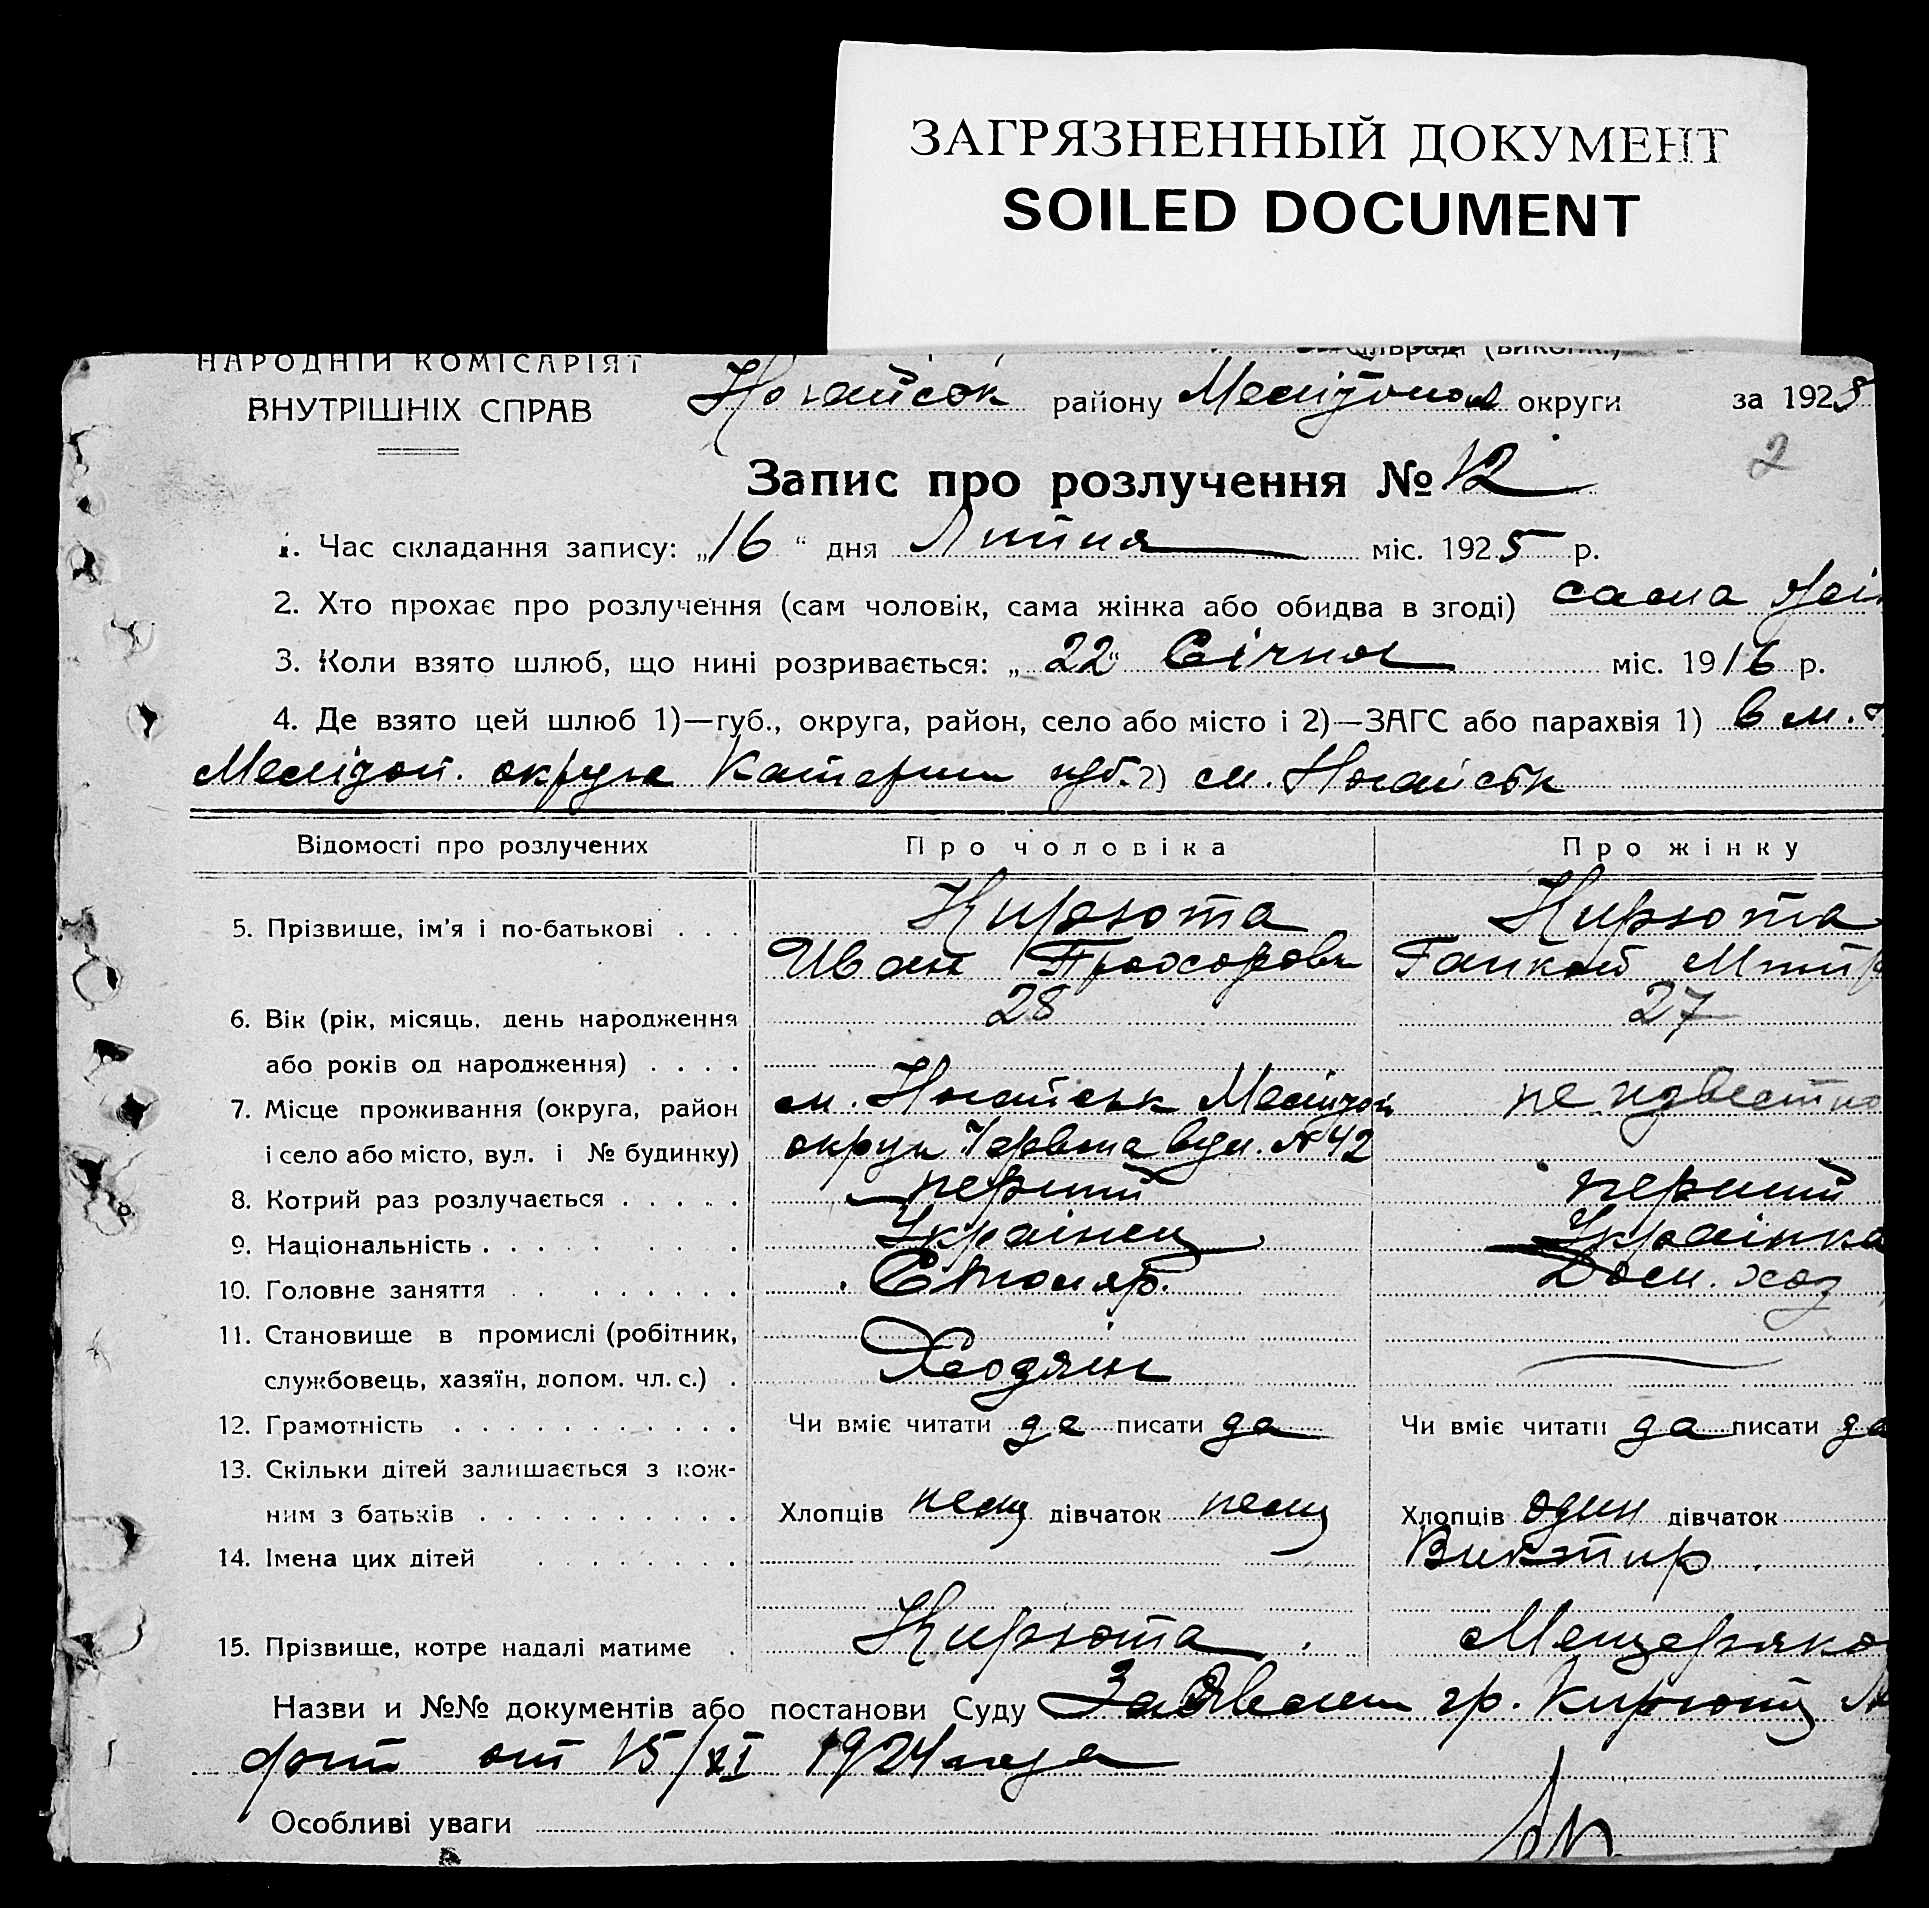 ЗАГРЯЗНЕННЫЙ ДОКУМЕНТ
SOILED DOCUMENT
НАРОДНІЙ КОМІСАРІЯТ
ВНУТРІШНІХ СПРАВ
Ногайськ району Мелітопол округи за 1925
2
Запис про розлучення № 12
1. Час складання запису: „16“ дня Липня міс. 1925 р.
2. Хто прохає про розлучення (сам чоловік, сама жінка або обидва в згоді) сама
3. Коли взято шлюб, що нині розривається: „22“ Січня міс. 1916 р.
4. Де взято цей шлюб 1)—губ., округа, район, село або місто і 2)—ЗАГС або парахвія 1) в м.
Мелітоп. округа Катерин губ. 2) м. Ногайськ
Відомості про розлучених Про чоловіка Про жінку
5. Прізвище, ім'я і по-батькові . . . Кирюта Кирюта
Иван Прохоров Ганна
6. Вік (рік, місяць, день народження 28 27
або років од народження) . . . .
7. Місце проживання (округа, район м. Ногайськ Мелітоп неизвестно
і село або місто, вул. і № будинку) округи вул. № 42
8. Котрий раз розлучається . . . . . перший перший
9. Національність . . . . . . . Українец Українка
10. Головне заняття . . . . . . . . Столяр. Дом. хоз
11. Становище в промислі (робітник,
службовець, хазяїн, допом. чл. с.) . Хазяин
12. Грамотність . . . . . . . . . . . Чи вміє читати да писати да Чи вміє читати да писати да
13. Скільки дітей залишається з кож-
ним з батьків . . . . . . . . . . Хлопців нема дівчаток нема Хлопців один дівчаток
14. Імена цих дітей . . . . . . . . Виктир
15. Прізвище, котре надалі матиме . Кирюта. Мещеряко
Назви и №№ документів або постанови Суду гр. Кирюты
от 15/XI 1924 года
Особливі уваги